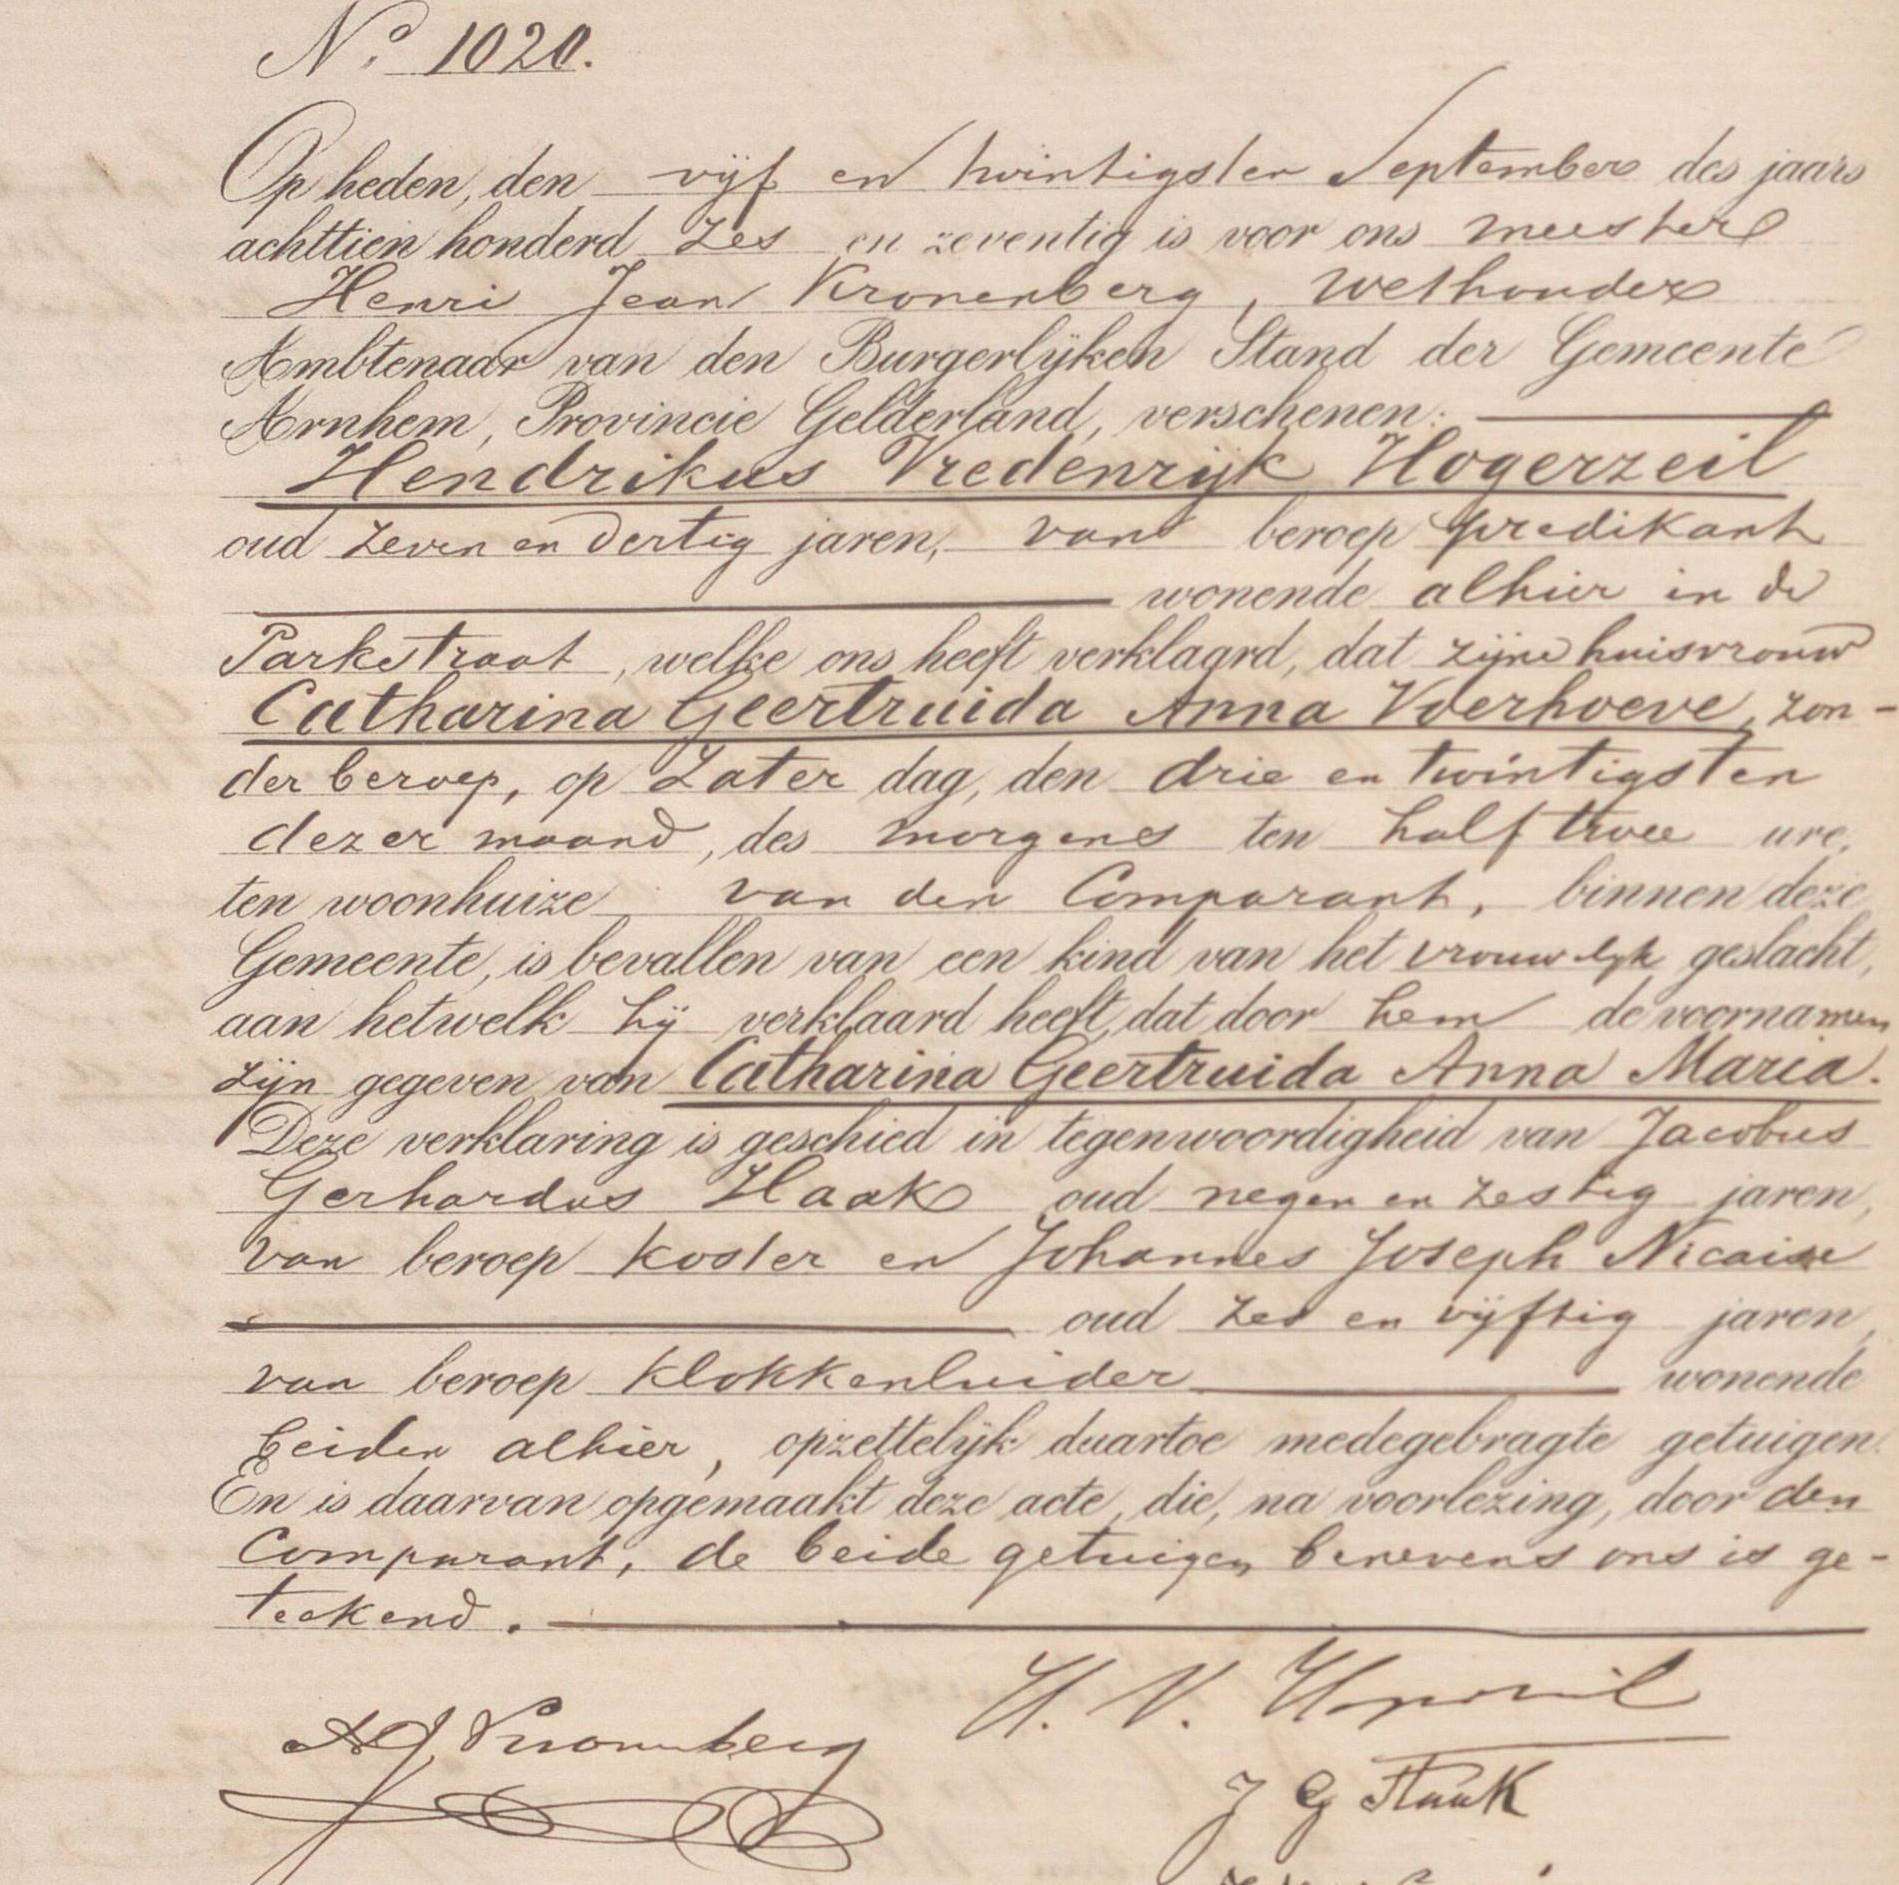 No. 1020.
Op heden, den vijf en twintigsten September des jaars
achttien honderd zes en zeventig is voor ons meester
Henri Jean Kronenberg, Wethouder
Ambtenaar van den Burgerlijken Stand der Gemeente
Arnhem, Provincie Gelderland, verschenen:
Hendrikus Vredenrijk Hogerzeil
oud zeven en dertig jaren, van beroep predikant
wonende alhier in de
Parkstraat, welke ons heeft verklaard, dat zijne huisvrouw
Catharina Geertruida Anna Voerhoeve, zon-
der beroep, op Zater dag, den drie en twintigsten
dezer maand, des morgens ten half twee ure,
ten woonhuize van den Comparant, binnen deze
Gemeente, is bevallen van een kind van het vrouwelijk geslacht,
aan hetwelk hij verklaard heeft, dat door hem de voornamen
zijn gegeven van Catharina Geertruida Anna Maria.
Deze verklaring is geschied in tegenwoordigheid van Jacobus
Gerhardus Haak oud negen en zestig jaren,
van beroep koster en Johannes Joseph Nicaise
oud zes en vijftig jaren,
van beroep klokkenluider wonende
beiden alhier, opzettelijk daartoe medegebragte getuigen.
En is daarvan opgemaakt deze acte, die, na voorlezing, door den
Comparant, de beide getuigen benevens ons is ge-
teekend.
H. V. Hogerzeil
HJ Kronenberg
J G Haak